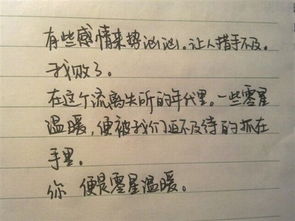 有些感情来势汹汹。让人措手不及。
我败了。
在这个流离失所的年代里。一些零星
温暖，便被我们迫不及待的抓在
手里。
你 便是零星温暖。